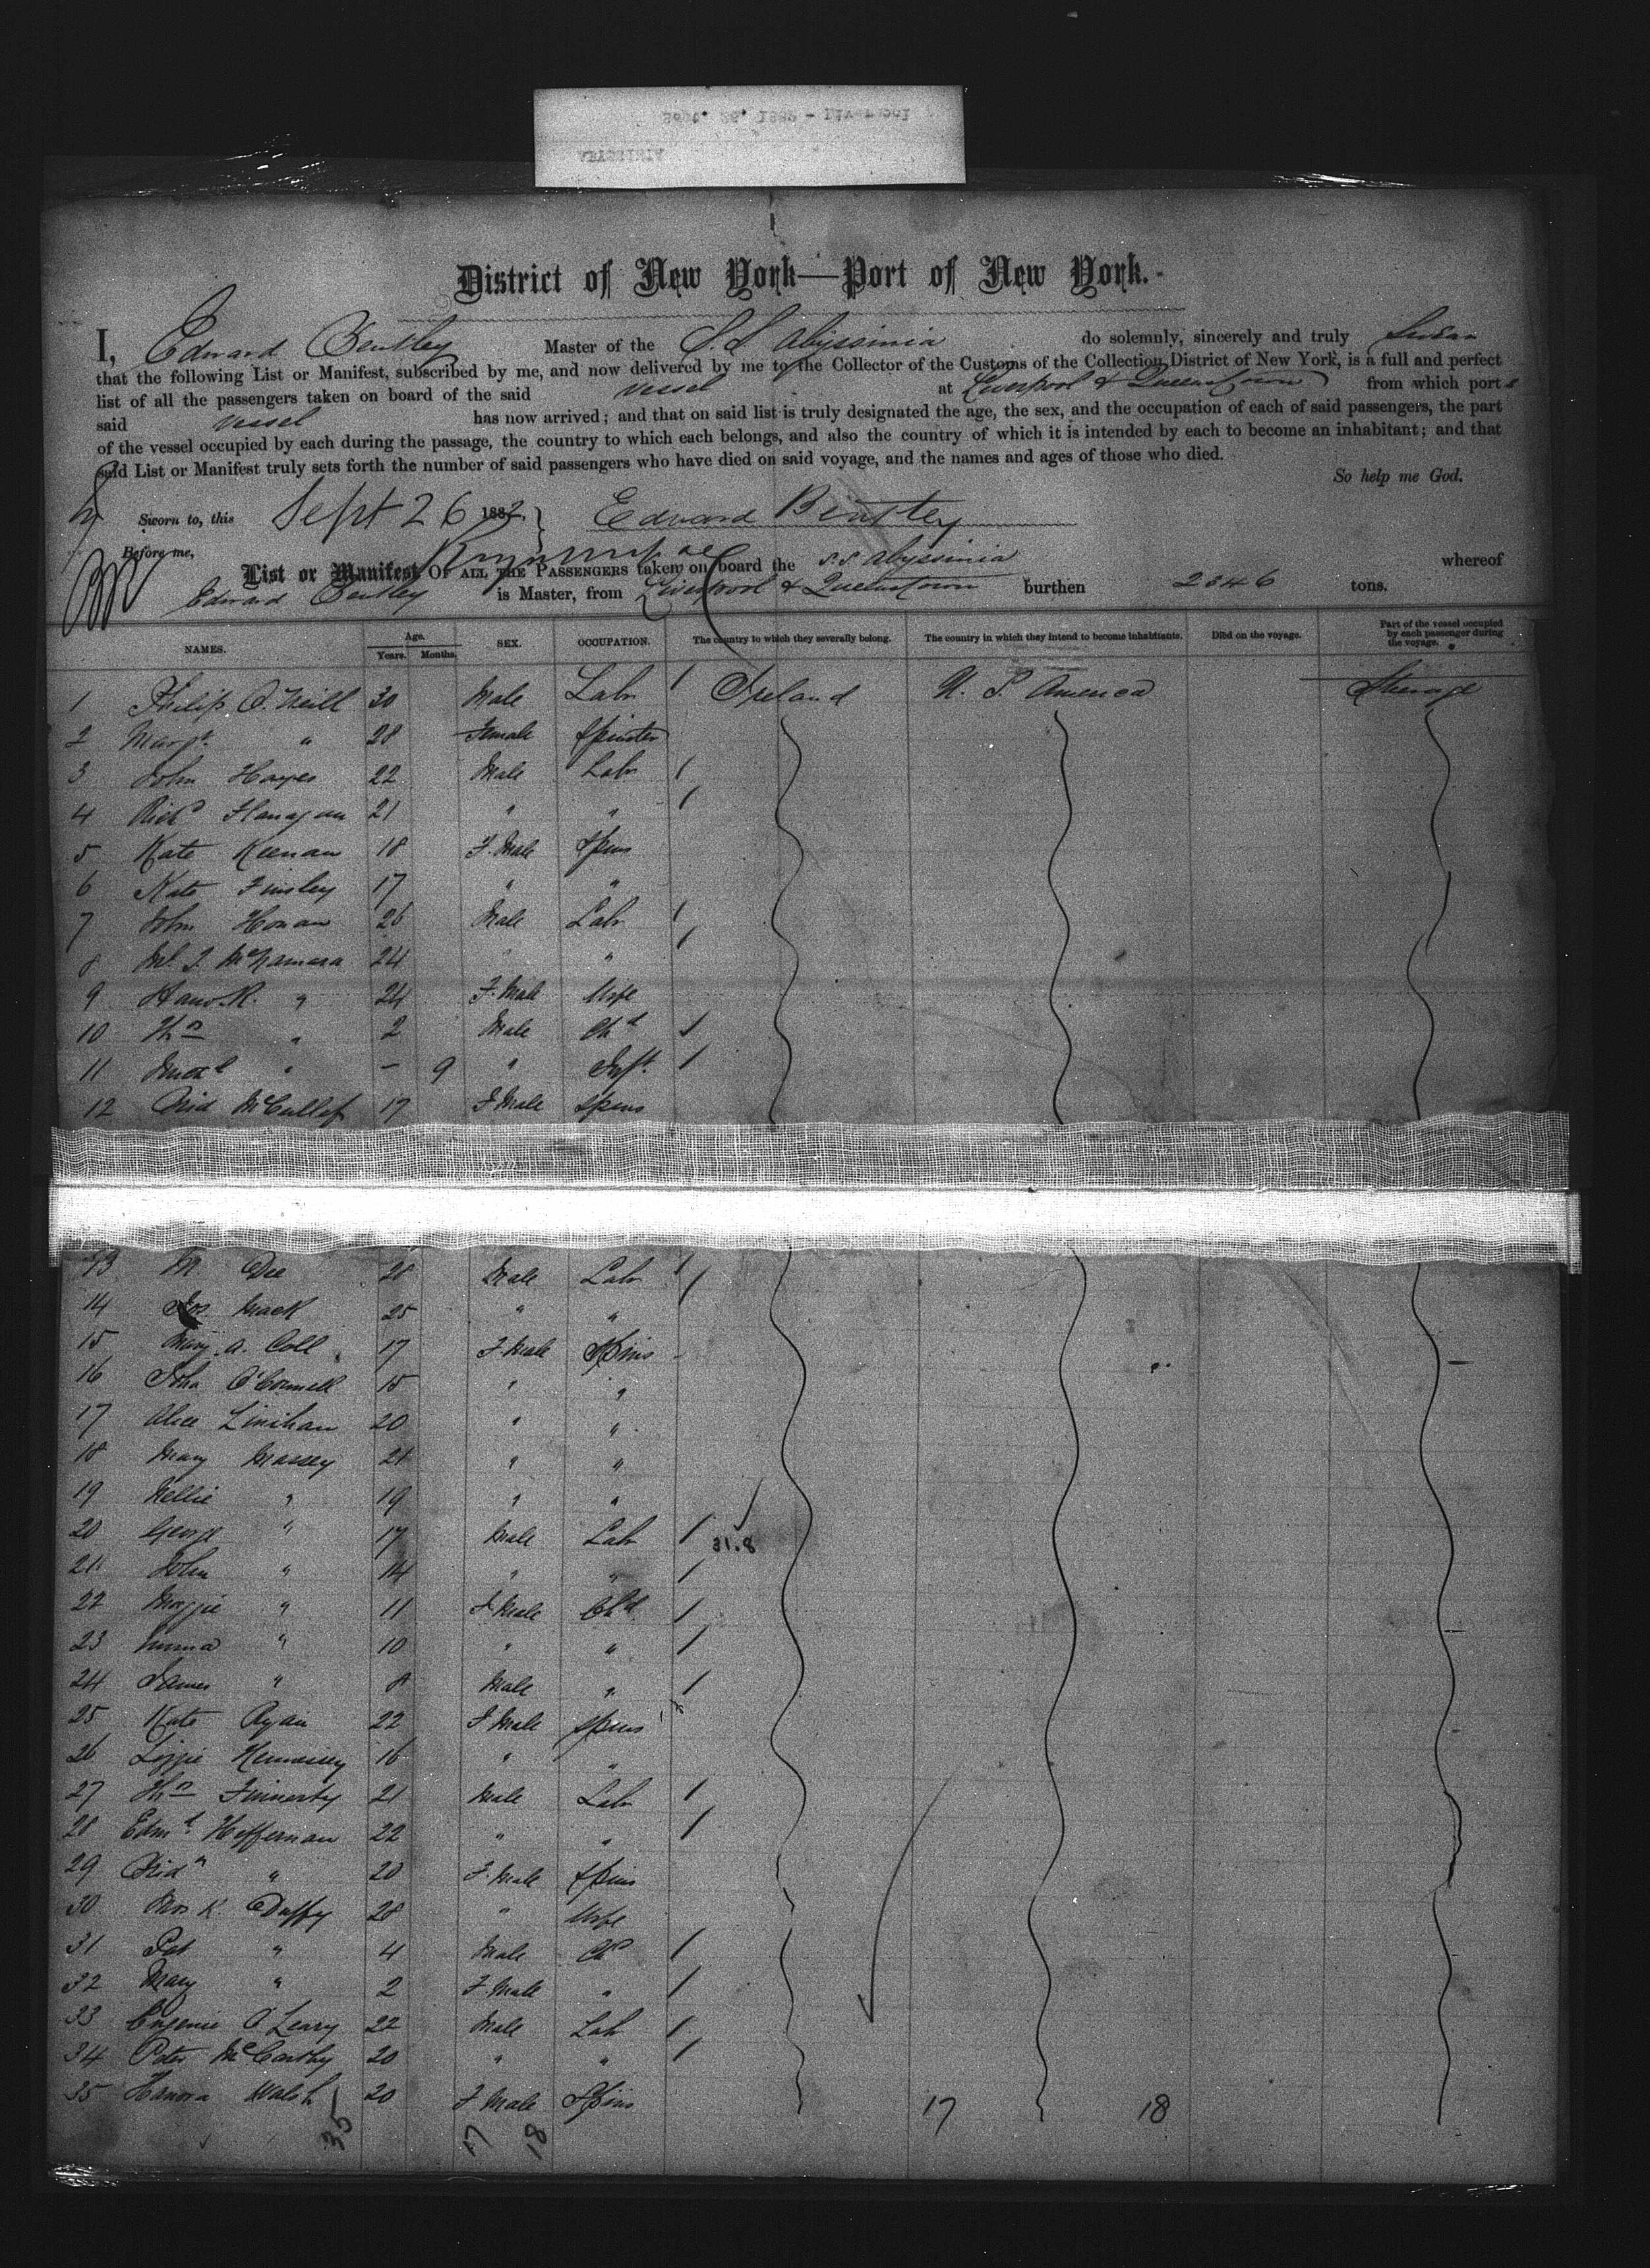 District of New York—Port of New York.
I, Edward Bentley Master of the S.S. Abyssinia do solemnly, sincerely and truly Swear
that the following List or Manifest, subscribed by me, and now delivered by me to the Collector of the Customs of the Collection District of New York, is a full and perfect
list of all the passengers taken on board of the said vessel at Liverpool & Queenstown from which ports
said vessel has now arrived; and that on said list is truly designated the age, the sex, and the occupation of each of said passengers, the part
of the vessel occupied by each during the passage, the country to which each belongs, and also the country of which it is intended by each to become an inhabitant; and that
said List or Manifest truly sets forth the number of said passengers who have died on said voyage, and the names and ages of those who died.
So help me God.
Sworn to, this Sept 26 1882 Edward Bentley
Before me,
List or Manifest OF ALL THE PASSENGERS taken on board the S.S. Abyssinia whereof
Edward Bentley is Master, from Liverpool & Queenstown burthen 2346 tons.
NAMES. Age. Years. Months. SEX. OCCUPATION. The country to which they severally belong. The country in which they intend to become inhabitants. Died on the voyage. Part of the vessel occupied by each passenger during the voyage.
1 Philip O'Neill 30 Male Labr 1 Ireland U. S. America Steerage
2 Margt " 28 Female Spinster
3 John Hayes 22 Male Labr 1
4 Richd Flanagan 21 " " 1
5 Kate Keenan 18 F. Male Spins
6 Kate Finsley 17 " "
7 John Honan 26 Male Labr 1
8 Ml J. McNamara 24 " 1
9 " 24 F. Male Wife
10 Ths " 2 Male Chd 1
11 " – 9 " Inft 1
12 Brid 17 F Male Spins
13 M Dee 28 Male Labr 1
14 Jos Mack 25 " " 1
15 Mary A. Coll 17 F. Male Spins
16 Joha O'Connell 15 " "
17 Alice Linihan 20 " "
18 Mary Massey 21 " "
19 Nellie " 19 " "
20 George " 17 Male Labr 1 31.8
21 John " 14 " " 1
22 Maggie " 11 F Male Chd 1
23 Emma " 10 " " 1
24 James " 8 Male " 1
25 Kate Ryan 22 F Male Spins
26 Lizzie Hennessey 16 " "
27 Ths Finnerty 21 Male Labr 1
28 Edmd Heffernan 22 " " 1
29 Brid " 20 F. Male Spins
30 Mrs K Duffy 28 " Wife
31 Pat " 4 Male Chd 1
32 Mary " 2 F. Male " 1
33 Eugenie O'Leary 22 Male Lab 1
34 Peter McCarthy 20 " " 1
35 Hanora Walsh 20 F Male Spins
17 18
35 17 18